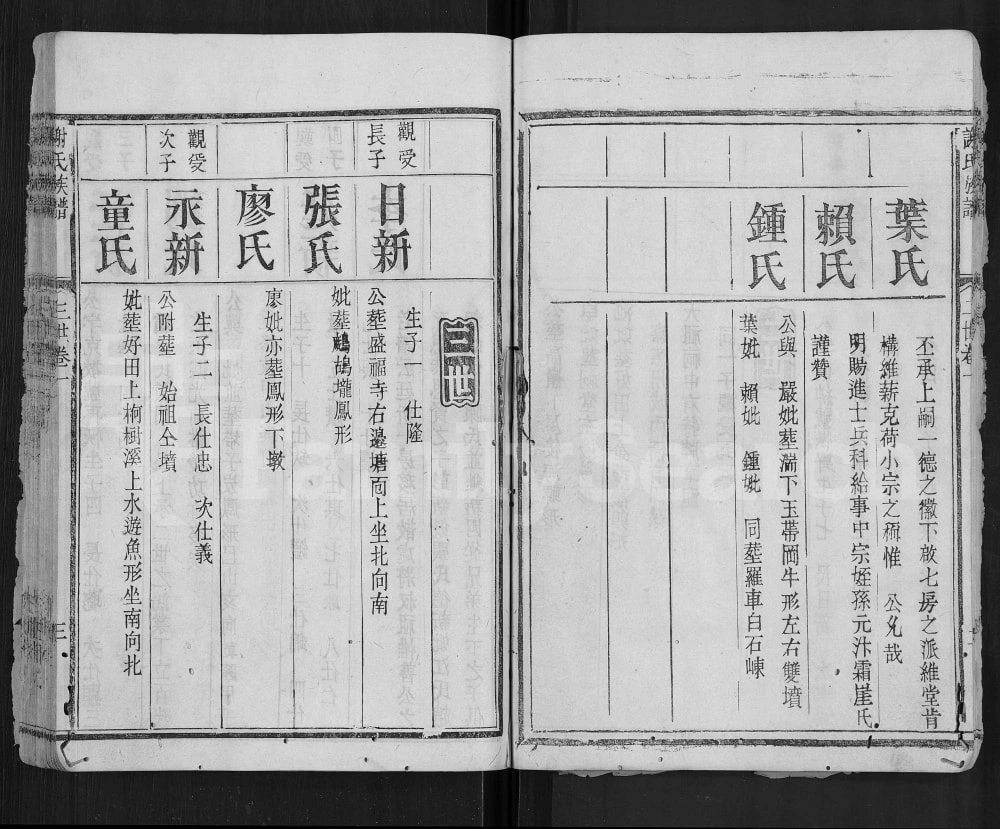 謝氏族譜
二世卷一
葉氏
賴氏
鍾氏
丕承上嗣一德之徽下啟七房之派維堂肯
構維薪克荷小宗之稱惟 公允哉
明賜進士兵科給事中宗姪孫元汴霜崖氏
謹贊
公與 嚴妣塟湍下玉帶岡牛形左右雙墳
葉妣 賴妣 鍾妣 同塟羅車白石崠
三世
觀受
長子
日新
生子一 仕隆
公塟盛福寺右邊塘面上坐北向南
張氏
妣塟鷓鴣壠鳳形
廖氏
廖妣亦塟鳳形下墩
觀受
次子
永新
生子二 長仕忠 次仕義
公附塟 始祖仝墳
童氏
妣塟好田上桐樹溪上水遊魚形坐南向北
謝氏族譜
三世卷一
三